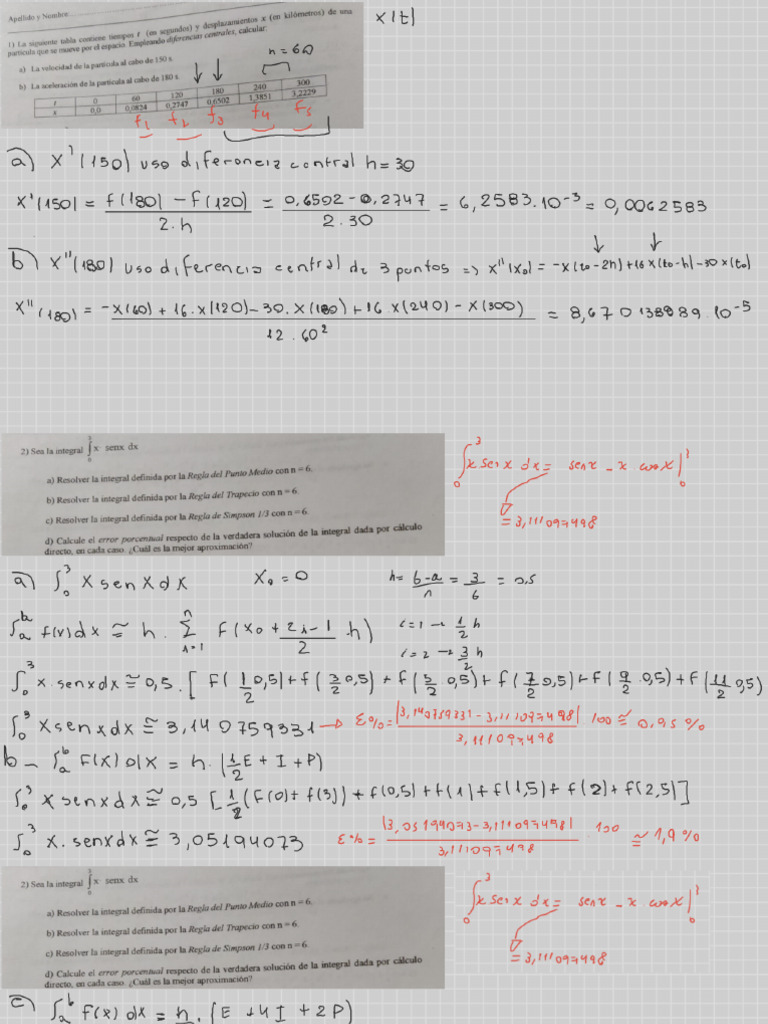 Apellido y Nombre
x(t)
1) La siguiente tabla contiene tiempos t (en segundos) y desplazamientos x (en kilómetros) de una
partícula que se mueve por el espacio. Empleando diferencias centrales, calcular:
h = 60
a) La velocidad de la partícula al cabo de 150 s.
b) La aceleración de la partícula al cabo de 180 s.
t 0 60 120 180 240 300
x 0,0 0,0824 0,2747 0,6502 1,3851 3,2229
f1 f2 f3 f4 f5
a) x'(150) uso diferencia central h = 30
x'(150) = f(180) - f(120) / 2.h = 0,6502 - 0,2747 / 2.30 = 6,2583.10^-3 = 0,0062583
b) x''(180) uso diferencia central de 3 puntos => x''(x0) = -x(t0-2h)+16x(t0-h)-30x(t0)
x''(180) = -x(60) + 16.x(120) - 30.x(180) + 16.x(240) - x(300) / 12.60² = 8,670138889.10^-5
2) Sea la integral ∫0^3 x senx dx
a) Resolver la integral definida por la Regla del Punto Medio con n = 6.
b) Resolver la integral definida por la Regla del Trapecio con n = 6.
c) Resolver la integral definida por la Regla de Simpson 1/3 con n = 6.
d) Calcule el error porcentual respecto de la verdadera solución de la integral dada por cálculo
directo, en cada caso. ¿Cuál es la mejor aproximación?
∫0^3 x senx dx = senx - x cosx |0^3
= 3,111097498
a) ∫0^3 x senx dx x0 = 0 h = b-a / n = 3/6 = 0,5
∫a^b f(x)dx ≅ h. Σ i=1^n f(x0 + 2i-1 / 2 .h) i=1 → 1/2 h
i=2 → 3/2 h
∫0^3 x.senx dx ≅ 0,5.[f(1/2 0,5)+f(3/2 0,5)+f(5/2 0,5)+f(7/2 0,5)+f(9/2 .0,5)+f(11/2 0,5)
∫0^3 x senx dx ≅ 3,140759331 → ε% = |3,140759331 - 3,111097498| / 3,111097498 100 ≅ 0,95 %
b - ∫a^b f(x) dx = h.(1/2 E + I + P)
∫0^3 x senx dx ≅ 0,5 [1/2 (f(0)+f(3)) + f(0,5)+f(1)+f(1,5)+f(2)+f(2,5)]
∫0^3 x.senx dx ≅ 3,05194073 ε% = |3,05194073 - 3,111097498| / 3,111097498 . 100 ≅ 1,9 %
2) Sea la integral ∫0^3 x senx dx
a) Resolver la integral definida por la Regla del Punto Medio con n = 6.
b) Resolver la integral definida por la Regla del Trapecio con n = 6.
c) Resolver la integral definida por la Regla de Simpson 1/3 con n = 6.
d) Calcule el error porcentual respecto de la verdadera solución de la integral dada por cálculo
directo, en cada caso. ¿Cuál es la mejor aproximación?
∫0^3 x senx dx = senx - x cosx |0^3
= 3,111097498
c) ∫a^b f(x) dx = h . (E + 4I + 2P)